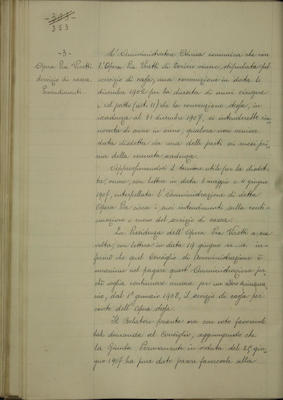 353
-3-
Opera Pia Viotti
Servizio di cassa
Provvedimenti.
L'Amministratore Cénova comunica che con
l'Opera Pia Viotti di Torino venne stipulata pel
servizio di cassa, una convenzione in data 6
dicembre 1902 per la durata di anni cinque
e col patto (art. 11) che la convenzione stessa, in
scadenza al 31 dicembre 1907, si intenderebbe rin-
novata di anno in anno, qualora non venisse
data disdetta da una delle parti sei mesi pri-
ma della venuta scadenza.
Approssimandosi il termine utile per la disdet-
ta, venne, con lettera in data 6 maggio giugno
1907, interpellata l'Amministrazione di detta
Opera Pia circa i suoi intendimenti sulla conti-
nuazione o meno del servizio di cassa.
La Presidenza dell'Opera Pia Viotti a sua
volta, con lettera in data 19 giugno in-
formò che quel Consiglio di Amministrazione è
unanime nel pregare quest'Amministrazione per-
chè voglia continuare ancora per un
dal 1º gennaio 1908, il servizio di cassa per
conto dell'Opera stessa.
Il Relatore presenta ora con voto favorevole
tale domanda al Consiglio, aggiungendo che
la Giunta Permanente in seduta del 25 giu-
gno 1907 ha pure dato parere favorevole alla